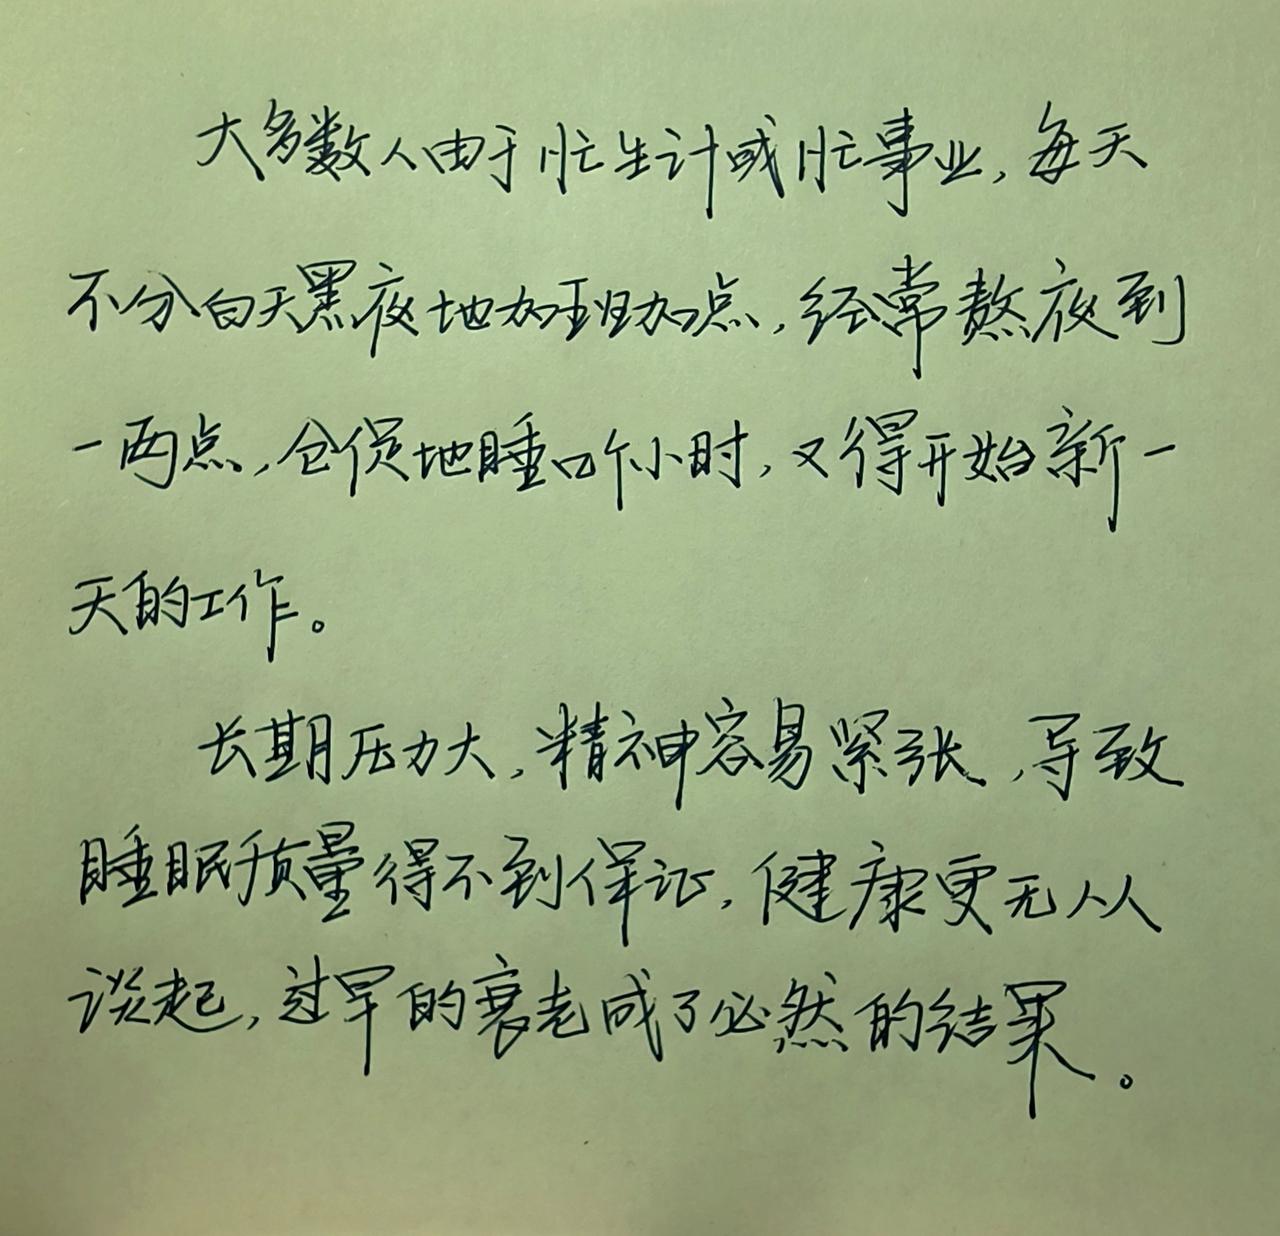 大多数人由于忙生计或忙事业,每天
不分白天黑夜地加班加点,经常熬夜到
一两点,仓促地睡四个小时,又得开始新一
天的工作。
长期压力大,精神容易紧张,导致
睡眠质量得不到保证,健康更无从
谈起,过早的衰老成了必然的结果。